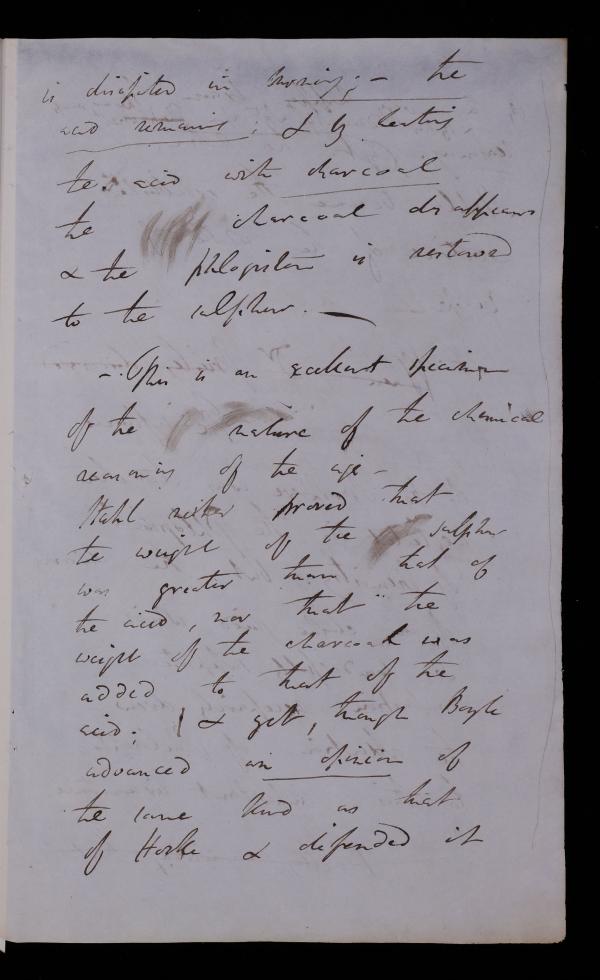 is dissipated in burning; – the
acid remains; & by heating
the acid with charcoal
the charcoal disappears
& the phlogiston is restored
to the sulphur. —
– This is an excellent specimen
of the nature of the chemical
reasoning of the age –
Stahl neither proved that
the weight of the sulphur
was greater than that of
the acid, nor that the
weight of the charcoal was
added to that of the
acid; & yet, though Boyle
advanced an opinion of
the same kind as that
of Hooke & defended it